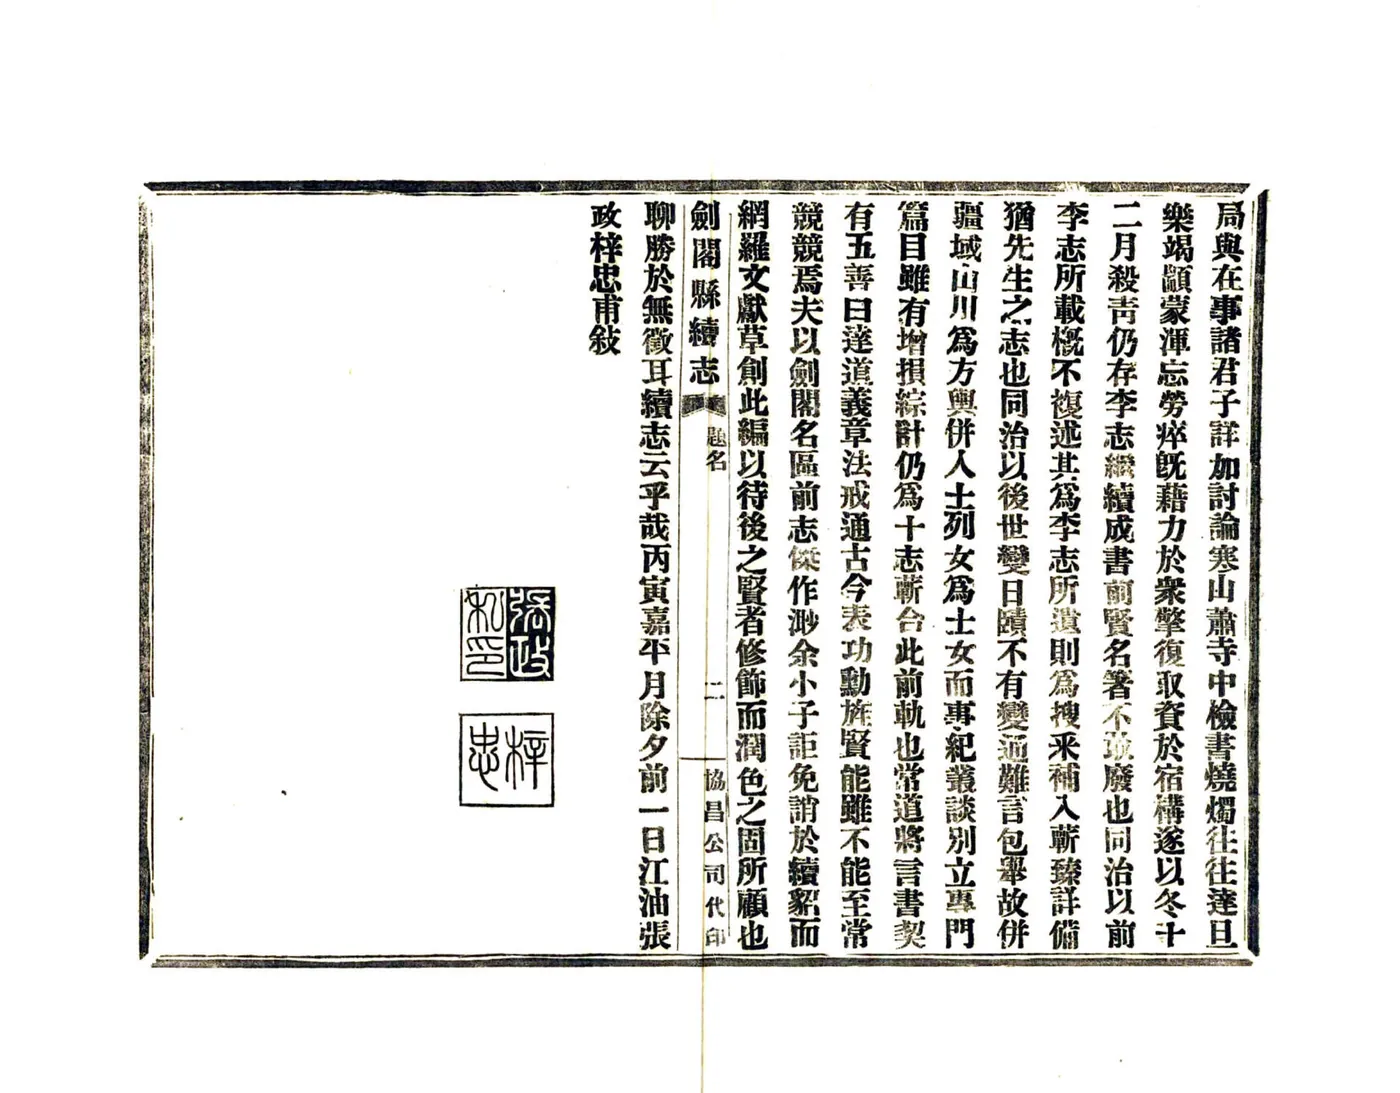 局與在事諸君子詳加討論寒山蕭寺中檢書燒燭往往達旦
樂竭顓蒙渾忘勞瘁旣藉力於衆擎復取資於宿構遂以冬十
二月殺靑仍存李志繼續成書前賢名箸不敢廢也同治以前
李志所載槪不複述其爲李志所遺則爲搜采補入蘄臻詳備
猶先生之志也同治以後世變日賾不有變通難言包舉故併
疆域山川爲方輿併人士列女爲士女而專紀叢談別立專門
篇目雖有增損綜計仍爲十志蘄合此前軌也常道將言書契
有五善曰達道義章法戒通古今表功勳旌賢能雖不能至常
競競焉夫以劍閣名區前志傑作渺余小子詎免誚於續貂而
網羅文獻草創此編以待後之賢者修飾而潤色之固所願也
劍閣縣續志 題名 二 協昌公司代印
聊勝於無徵耳續志云乎哉丙寅嘉平月除夕前一日江油張
政梓忠甫敍
張政私印
梓忠